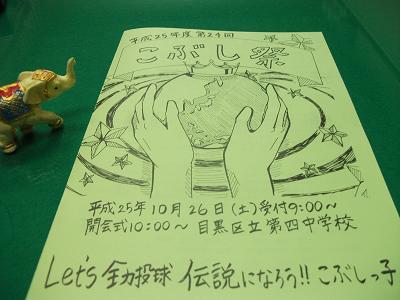 平成25年度第24回
こぶし祭
平成25年10月26日(土)受付9:00〜
開会式10:00〜 目黒区立第四中学校
Let's 全力投球 伝説になろう!! こぶしっ子